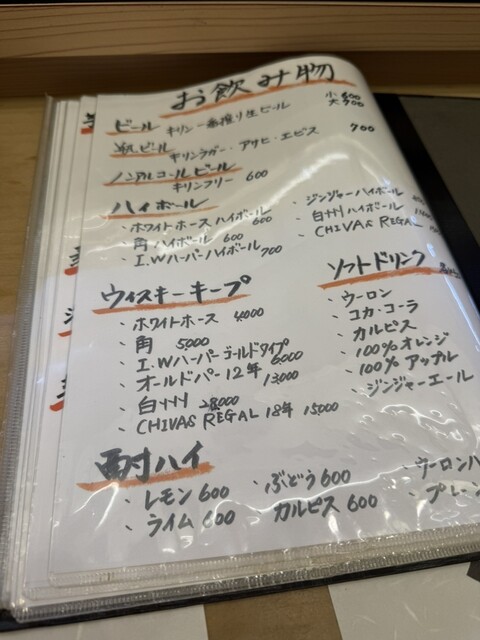 お飲み物
ビール キリン一番搾り生ビール 小600
大900
瓶ビール キリンラガー・アサヒ・エビス 700
ノンアルコールビール
キリンフリー 600
ハイボール
・ホワイトホースハイボール 600
・角ハイボール 600
・I.Wハーパーハイボール 700
ジンジャーハイボール
・白州ハイボール
・CHIVAS REGAL
ウィスキーキープ
・ホワイトホース 4,000
・角 5,000
・I.Wハーパーゴールドタイプ 6,000
・オールドパー12年 13,000
・白州 28,000
・CHIVAS REGAL 18年 15,000
ソフトドリンク
・ウーロン
・コカ・コーラ
・カルピス
・100%オレンジ
・100%アップル
・ジンジャーエール
酎ハイ
・レモン600
・ライム600
・ぶどう600
カルピス600
・ウーロンハ
・プレーン